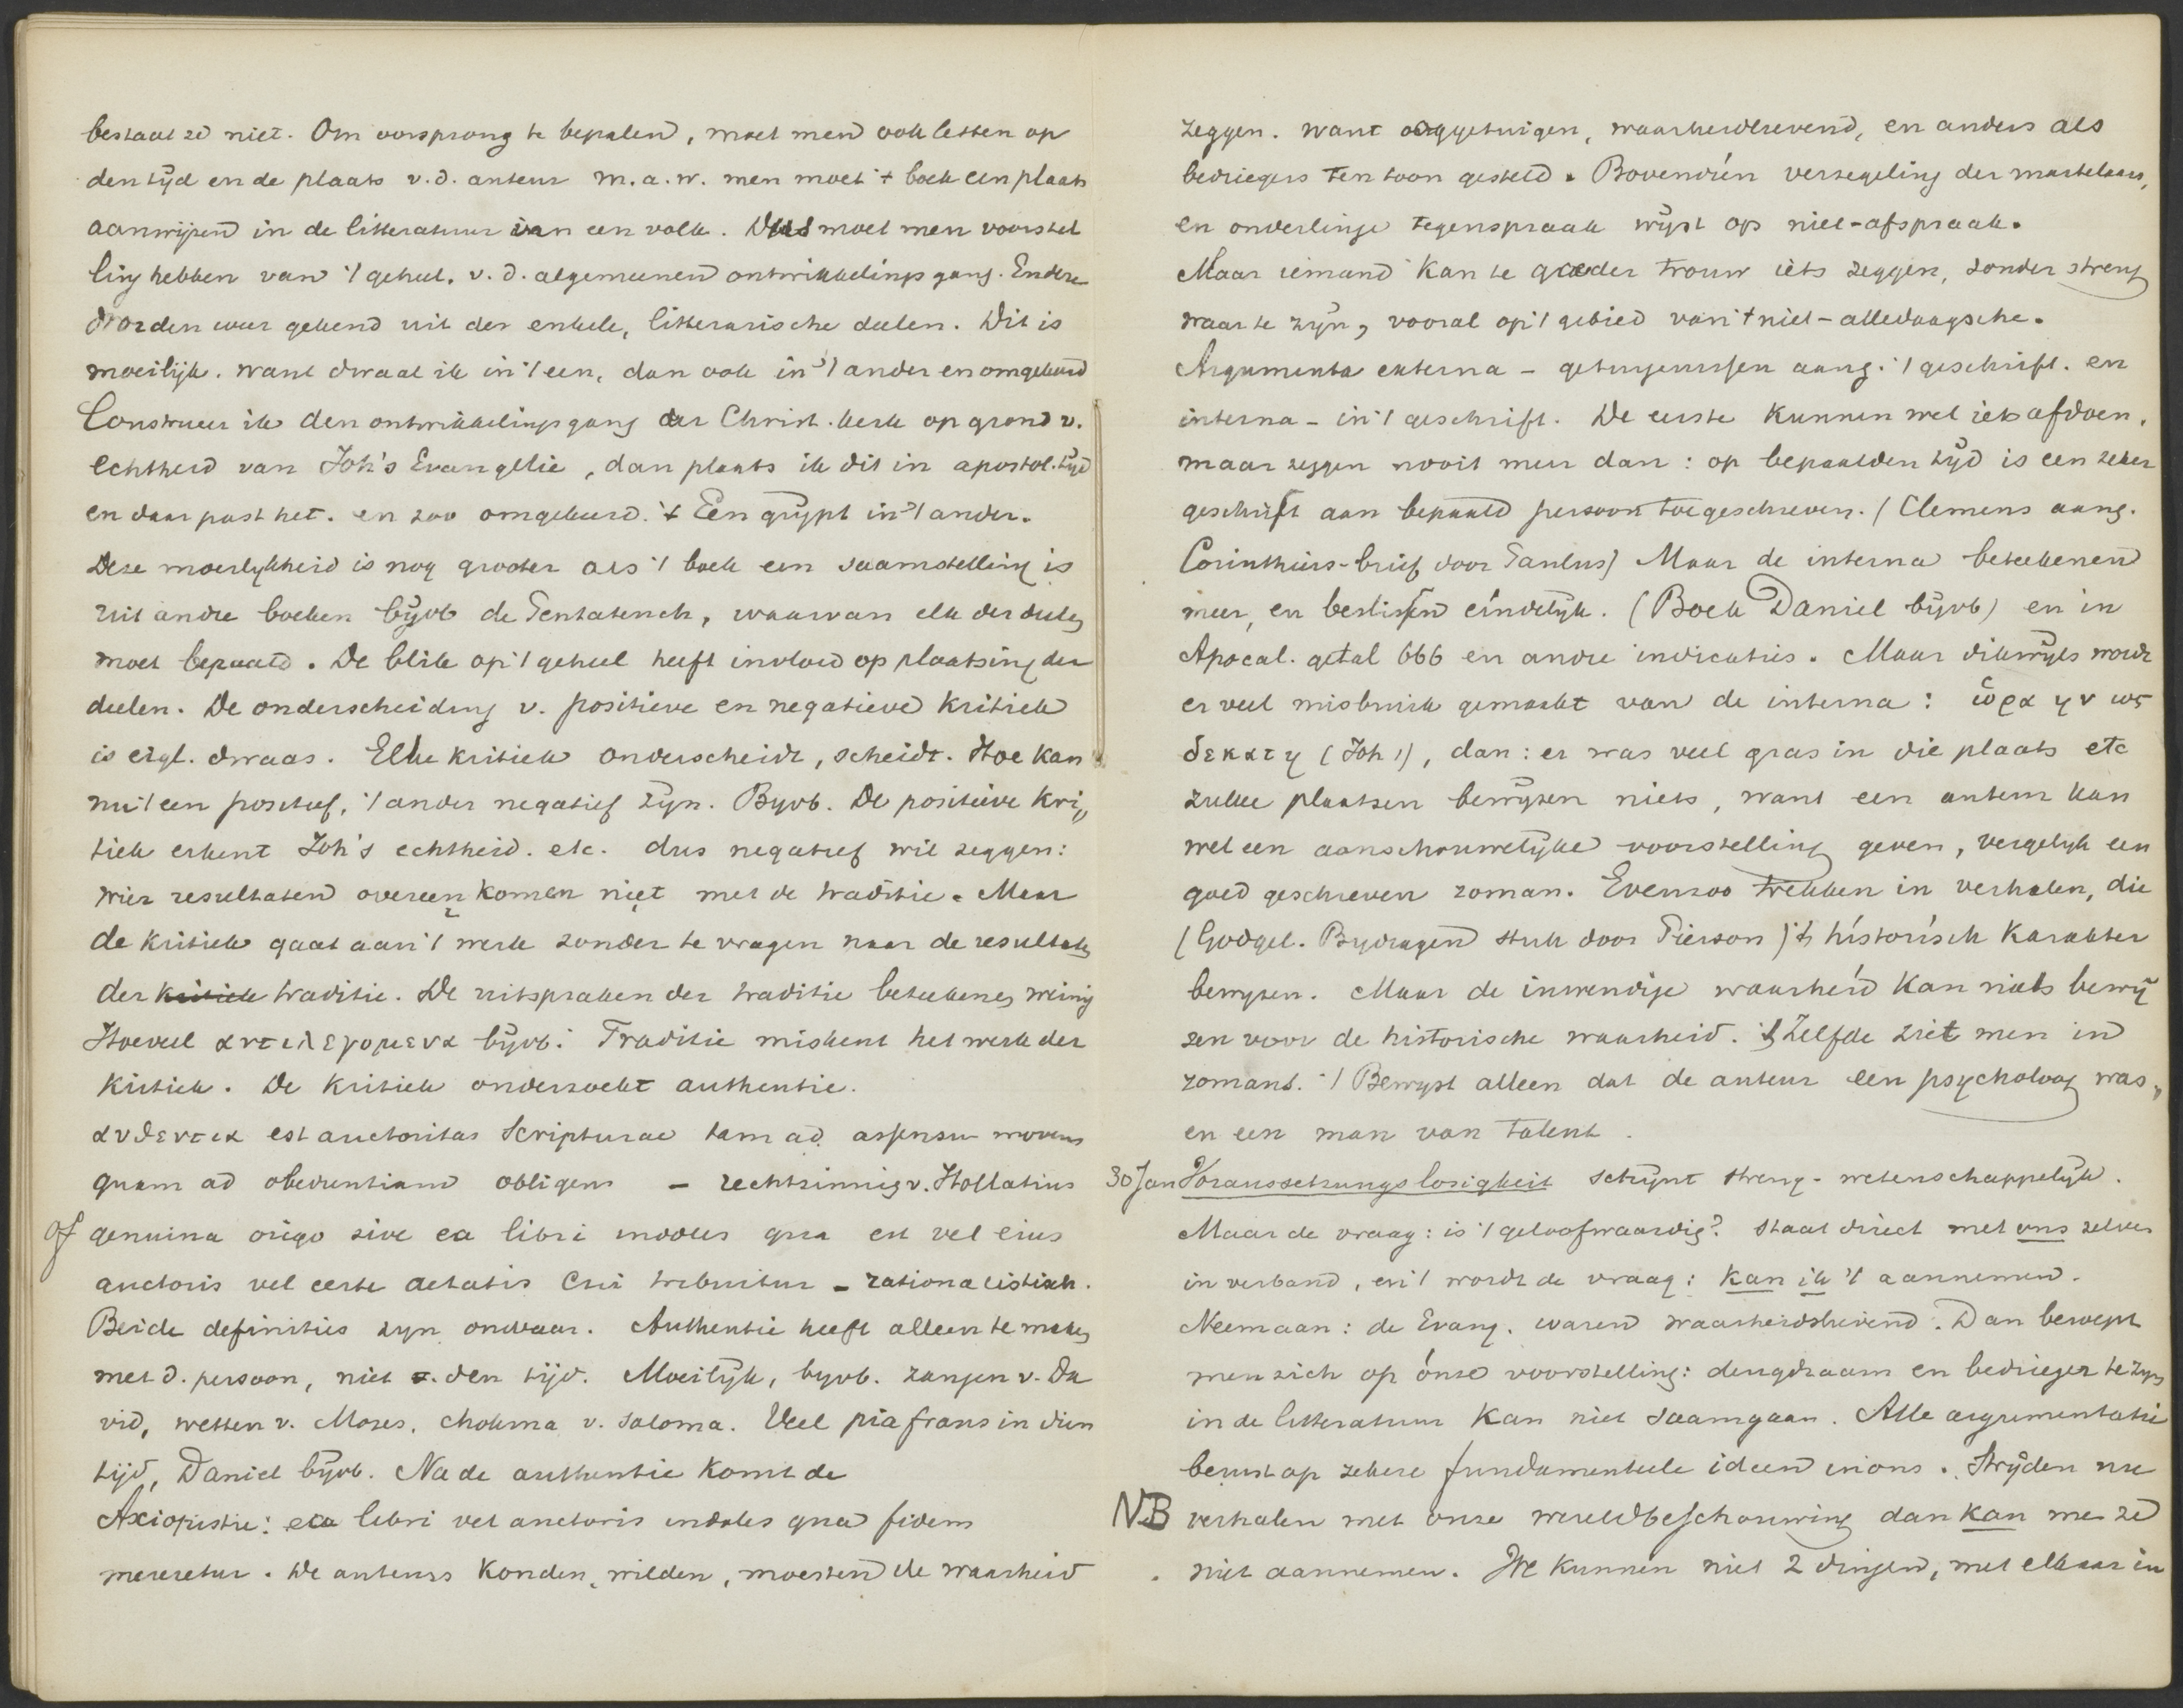 bestaat ze niet. Om oorsprong te bepalen, moet men ook letten op
den tijd en de plaats v. d. auteur m.a.w. men moet 't boek een plaats
aanwijzen in de litteratuur van een volk. Dus moet men voorstel
ling hebben van 't geheel. v. d. algemeenen ontwikkelingsgang. En deze
worden weer gekend uit der enkele, litterarische deelen. Dit is
moeilijk. want dwaal ik in 't een, dan ook in 't ander en omgekeerd
Construeer ik den ontwikkelingsgang der Christ. kerk op grond v.
echtheid van Joh's Evangelie, dan plaats ik dit in apostol. tijd
en daar past het. en zoo omgekeerd. 't Een grijpt in 't ander.
Deze moeilykheid is nog grooter als 't boek een saamstelling is
uit andre boeken bijvb de Pentateuch, waarvan elk der deelen
moet bepaald. De blik op 't geheel heeft invloed op plaatsing der
deelen. De onderscheiding v. positieve en negatieve kritiek
is eigl. dwaas. Elke kritiek onderscheidt, scheidt. Hoe kan
nu 't een positief, 't ander negatief zijn. Byvb. De positieve kri„
tiek erkent Joh's echtheid. etc. dus negatief wil zeggen:
wier resultaten overeenkomen niet met de traditie. Maar
de kritiek gaat aan 't werk zonder te vragen naar de resultaten
der kritiek traditie. De uitspraken der traditie beteekenen weinig
Hoeveel αντιλεγομενα bijvb. Traditie miskent het werk der
kritiek. De kritiek onderzoekt authentie.
αυθεντια est auctoritas Scripturae tam ad assensu movens
quam ad obedientiam obligens – rechtzinnig v. Hollatius
of genuina origo sive ea libri indoles qua est vel eius
auctoris vel certe aetatis cui tribuitur – rationalistisch.
Beide definities zyn onwaar. Authentie heeft alleen te maken
met d. persoon, niet v. den tijd. Moeilijk, byvb. zangen v. Da
vid, wetten v. Mozes, chokma v. Salomo. Veel pia fraus in dien
tijd, Daniel bijvb. Na de authentie komt de
Axiopistie: ea libri vel auctoris indoles qua fidem
mereretur. De auteurs konden, wilden, moesten de waarheid
zeggen. want ooggetuigen, waarheidlievend, en anders als
bedriegers ten toon gesteld. Bovendien verzegeling der martelaars,
en onderlinge tegenspraak wijst op niet-afspraak.
Maar iemand kan te goeder trouw iets zeggen, zonder streng
waar te zijn, vooral op 't gebied van 't niet-alledaagsche.
Argumenta externa – getuigenissen aang. 't geschrift. en
interna – in 't geschrift. De eerste kunnen wel iets afdoen,
maar zeggen nooit meer dan: op bepaalden tijd is een zeker
geschrift aan bepaald persoon toegeschreven. (Clemens aang.
Corinthiers-brief door Paulus) Maar de interna beteekenen
meer, en beslissen eindelijk. (Boek Daniel bijvb) en in
Apocal. getal 666 en andre indicaties. Maar dikwijls wordt
er veel misbruik gemaakt van de interna: ὥρα ην ως
δεκατη (Joh 1), dan: er was veel gras in die plaats etc
zulke plaatsen bewijzen niets, want een auteur kan
wel een aanschouwelijke voorstelling geven, vergelijk een
goed geschreven roman. Evenzoo trekken in verhalen, die
(Godgel. Bydragen stuk door Pierson) 't historisch karakter
bewyzen. Maar de inwendige waarheid kan niets bewij
zen voor de historische waarheid. 't Zelfde ziet men in
romans. 't Bewyst alleen dat de auteur een psycholoog was,
en een man van talent.
30 Jan Voraussetzungslosigkeit schijnt streng-wetenschappelijk.
Maar de vraag: is 't geloofwaardig? staat direct met ons zelven
in verband, en 't wordt de vraag: kan ik 't aannemen.
Neem aan: de Evang. waren waarheidslievend. Dan beroept
men zich op ónze voorstelling: deugdzaam en bedrieger te zyn
in de litteratuur kan niet saamgaan. Alle argumentatie
berust op zekere fundamenteele ideen in ons. Strijden nu
NB verhalen met onze wereldbeschouwing dan kan men ze
niet aannemen. We kunnen niet 2 dingen, met elkaar in